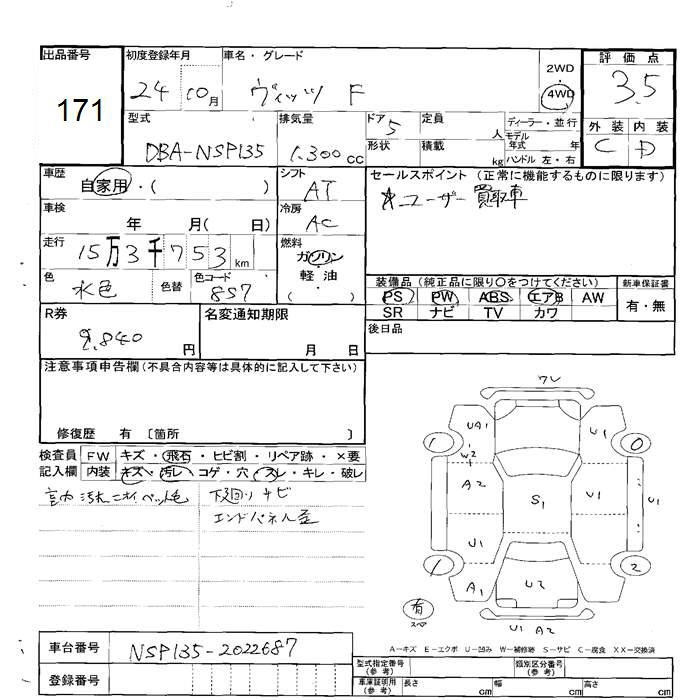 出品番号
171
初度登録年月
24 10月
車名・グレード
ヴィッツ F
2WD
・
4WD
評価点
3.5
外装 内装
C D
型式
DBA-NSP135
排気量
1.300cc
ドア 5
形状
定員 人
積載 kg
ディーラー・並行
モデル年式 年
ハンドル 左・右
車歴
自家用・( )
シフト
AT
セールスポイント(正常に機能するものに限ります)
☆ユーザー買取車
車検
年 月( 日)
冷房
AC
走行
15万3千753km
燃料
ガソリン
・
軽油
( )
色
水色
色替
色コード
8S7
装備品(純正品に限り○をつけてください)
PS PW ABS エアB AW
SR ナビ TV カワ
新車保証書
有・無
後日品
R券
9,840円
名変通知期限
月 日
注意事項申告欄(不具合内容等は具体的に記入して下さい)
修復歴 有 〔箇所 〕
検査員記入欄
FW キズ・飛石・ヒビ割・リペア跡・×要
内装 キズ・汚レ・コゲ・穴・スレ・キレ・破レ
下回りサビ
エンドパネル歪
ワレ
UA1
1
0
W2
A2
S1
U1
U1
U1
1
2
A1
U2
有
スペア
U1 A2
A-キズ E-エクボ U-凹み W-補修跡 S-サビ C-腐食 XX-交換済
車台番号
NSP135-2022687
登録番号
型式指定番号(参考)
類別区分番号(参考)
車庫証明用(参考) 長さ cm 幅 cm 高さ cm